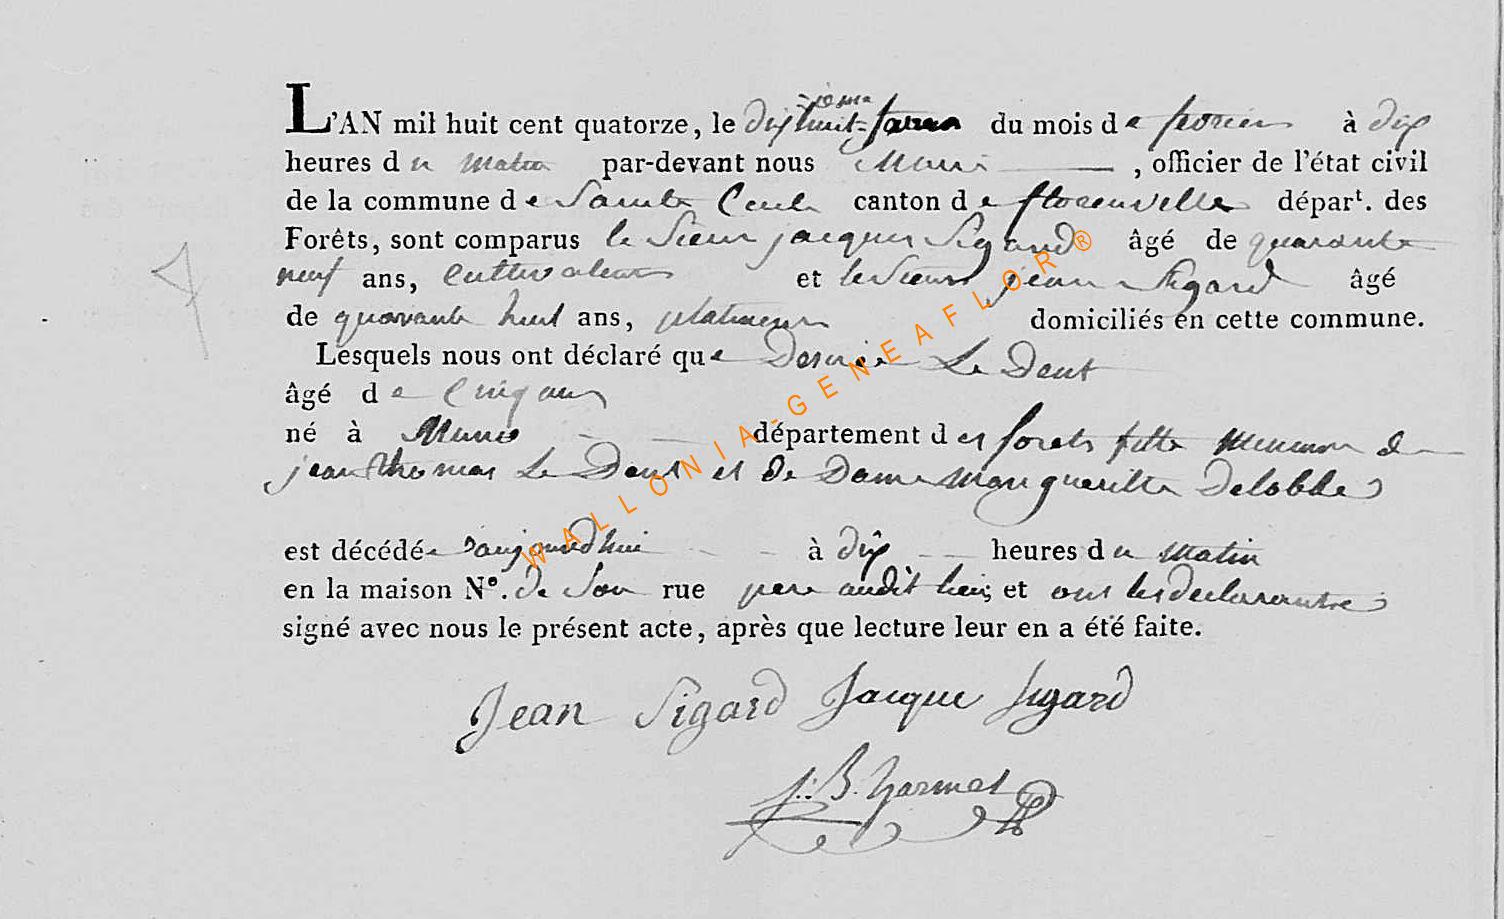 L'AN mil huit cent quatorze, le dix huitieme jour du mois de fevrier à dix
heures du matin par-devant nous Maire, officier de l'état civil
de la commune de Sainte Cecile canton de florenville départ. des
Forêts, sont comparus le Sieur jacques Sigard âgé de quarante
neuf ans, cultivateur et le Sieur jean Sigard âgé
de quarante huit ans, domiciliés en cette commune.
Lesquels nous ont déclaré que Le Dent
âgé de cinq ans
né à Muno département des forets fille mineure de
jean thomas Le Dent et de Dame Margueritte Delobbe
est décédée aujourdhui à dix heures du matin
en la maison No. de Son rue pere audit lieu, et ont les declarants
signé avec nous le présent acte, après que lecture leur en a été faite.
Jean Sigard Jacque Sigard
J: B. harmel
WALLONIA-GENEAFLOR®